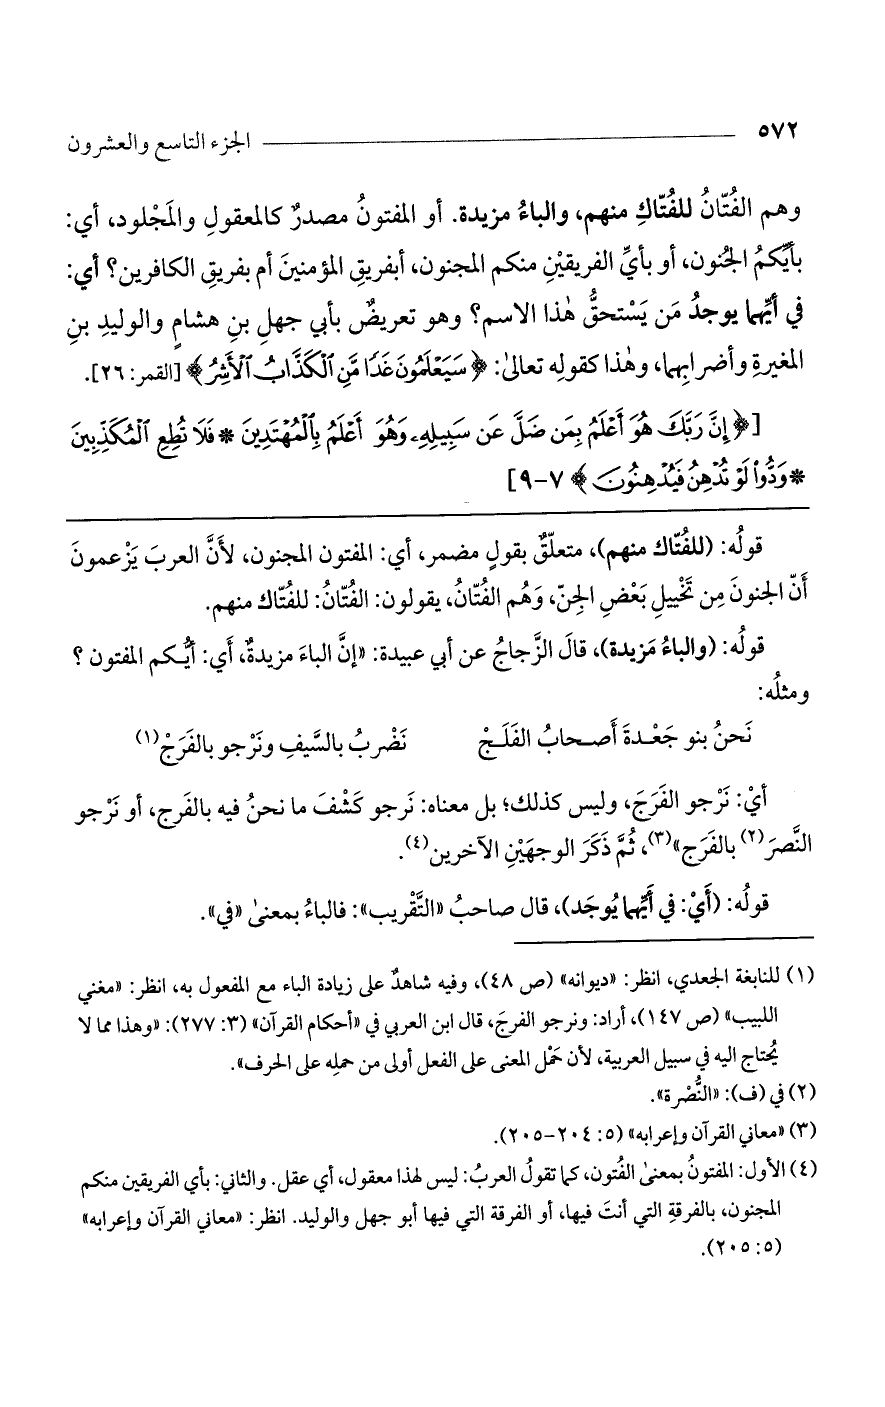 ٥٧٢ الجزء التاسع والعشرون
وهم الفُتّانُ للفُتّاكِ منهم، والباءُ مزيدة. أو المفتونُ مصدرٌ كالمعقولِ والمَجْلود، أي:
بأيِّكمُ الجُنون، أو بأيِّ الفريقيْنِ منكم المجنون، أبفريقِ المؤمنينَ أم بفريقِ الكافرين؟ أي:
في أيِّهما يوجدُ مَن يَسْتحقُّ هٰذا الاسم؟ وهو تعريضٌ بأبي جهلِ بنِ هشامٍ والوليدِ بنِ
المغيرةِ وأضرابِهما، وهٰذا كقولِه تعالىٰ: ﴿سَيَعْلَمُونَ غَدًا مَّنِ ٱلْكَذَّابُ ٱلْأَشِرُ﴾ [القمر: ٢٦].
[﴿إِنَّ رَبَّكَ هُوَ أَعْلَمُ بِمَن ضَلَّ عَن سَبِيلِهِۦ وَهُوَ أَعْلَمُ بِٱلْمُهْتَدِينَ * فَلَا تُطِعِ ٱلْمُكَذِّبِينَ
* وَدُّوا۟ لَوْ تُدْهِنُ فَيُدْهِنُونَ﴾ ٧-٩]
قولُه: (للفُتّاك منهم)، متعلّقٌ بقولٍ مضمر، أي: المفتون المجنون، لأَنَّ العربَ يَزْعمونَ
أَنّ الجنونَ مِن تَخْييلِ بَعْضِ الجِنّ، وَهُم الفُتّانُ، يقولون: الفُتّانُ: للفتّاك منهم.
قولُه: (والباءُ مَزيدة)، قالَ الزَّجاجُ عن أبي عبيدة: «إنَّ الباءَ مزيدةٌ، أي: أَيُّكم المفتون ؟
ومثلُه:
نَحنُ بنو جَعْدةَ أَصحابُ الفَلَجْ نَضْربُ بالسَّيفِ ونَرْجو بالفَرَجْ(١)
أيْ: نَرْجو الفَرَجَ، وليس كذلك؛ بل معناه: نَرجو كَشْفَ ما نحنُ فيه بالفَرج، أو نَرْجو
النَّصرَ(٢) بالفَرَج»(٣)، ثُمَّ ذَكَرَ الوجهَيْنِ الآخرين(٤).
قولُه: (أَيْ: في أَيِّهما يُوجَد)، قال صاحبُ «التَّقْريب»: فالباءُ بمعنىٰ «في».
(١) للنابغة الجعدي، انظر: «ديوانه» (ص ٤٨)، وفيه شاهدٌ على زيادة الباء مع المفعول به، انظر: «مغني
اللبيب» (ص ١٤٧)، أراد: ونرجو الفرجَ، قال ابن العربي في «أحكام القرآن» (٣: ٢٧٧): «وهذا مما لا
يُحتاج اليه في سبيل العربية، لأن حَمْل المعنى على الفعل أولى من حملِه على الحرف».
(٢) في (ف): «النُّصْرة».
(٣) «معاني القرآن وإعرابه» (٥: ٢٠٤-٢٠٥).
(٤) الأول: المفتونُ بمعنىٰ الفُتون، كما تقولُ العربُ: ليس لهذا معقول، أي عقل. والثاني: بأي الفريقين منكم
المجنون، بالفرقةِ التي أنتَ فيها، أو الفرقة التي فيها أبو جهل والوليد. انظر: «معاني القرآن وإعرابه»
(٥: ٢٠٥).